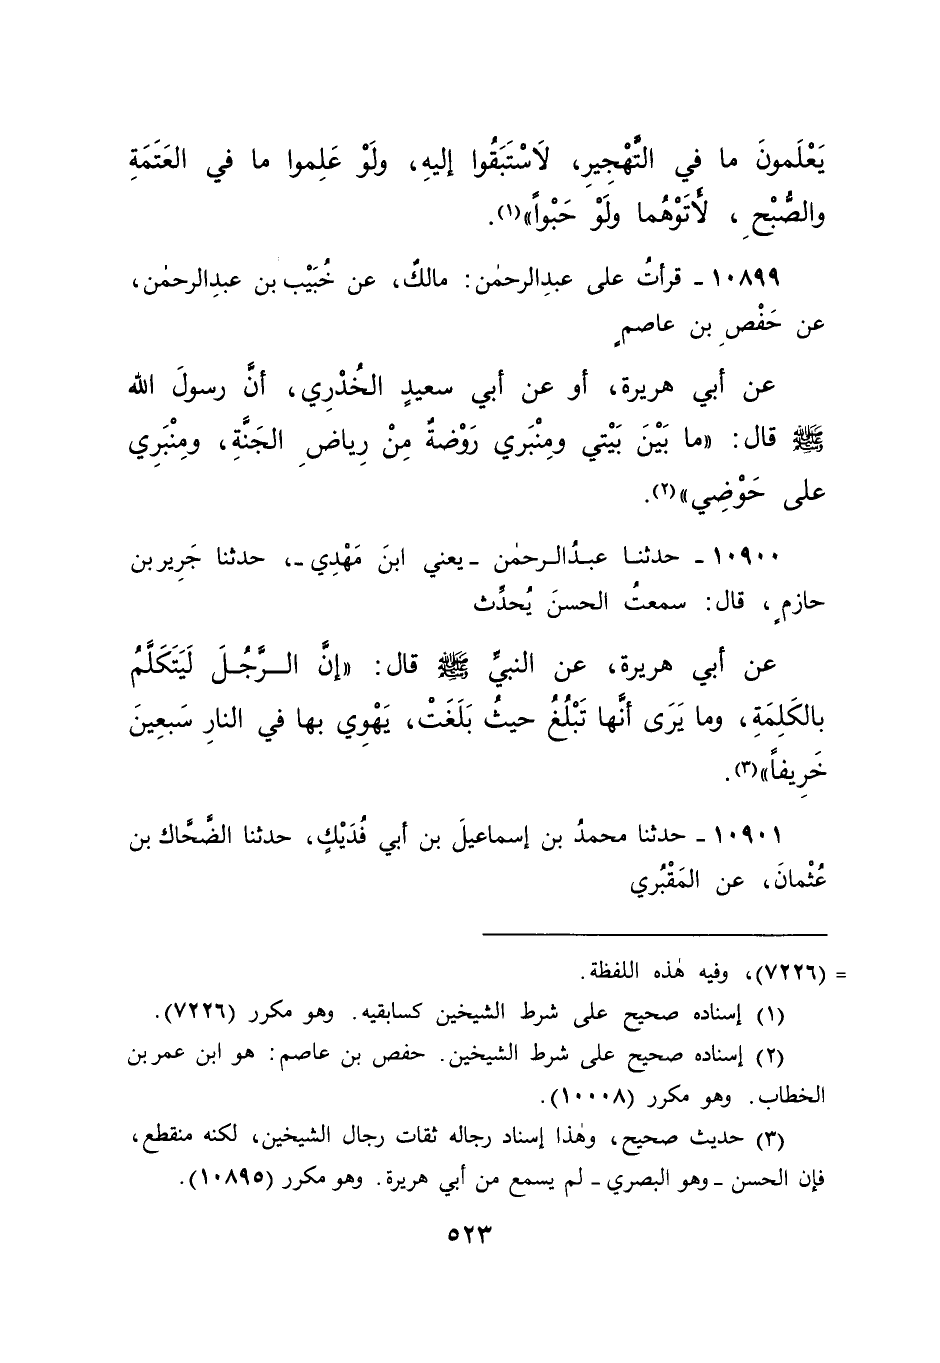 يَعْلَمونَ ما في التَّهْجِيرِ، لَاسْتَبَقُوا إليهِ، ولَوْ عَلِموا ما في العَتَمَةِ
والصُّبْحِ، لَأَتَوْهُما ولَوْ حَبْواً»(١).
١٠٨٩٩ - قرأتُ على عبدِالرحمٰن: مالكٌ، عن خُبَيْب بن عبدِالرحمٰن،
عن حَفْصِ بن عاصمٍ
عن أبي هريرة، أو عن أبي سعيدٍ الخُدْرِي، أنَّ رسولَ الله
ﷺ قال: «ما بَيْنَ بَيْتي ومِنْبَري رَوْضةٌ مِنْ رِياضِ الجَنَّةِ، ومِنْبَرِي
على حَوْضِي»(٢).
١٠٩٠٠ - حدثنا عبدُالرحمٰن - يعني ابنَ مَهْدِي -، حدثنا جَرِير بن
حازمٍ، قال: سمعتُ الحسنَ يُحدِّث
عن أبي هريرة، عن النبيِّ ﷺ قال: «إنَّ الرَّجُلَ لَيَتَكَلَّمُ
بالكَلِمَةِ، وما يَرَى أنَّها تَبْلُغُ حيثُ بَلَغَتْ، يَهْوِي بها في النارِ سَبعِينَ
خَرِيفاً»(٣).
١٠٩٠١ - حدثنا محمدُ بن إسماعيلَ بن أبي فُدَيْكٍ، حدثنا الضَّحَّاك بن
عُثْمانَ، عن المَقْبُري
= (٧٢٢٦)، وفيه هٰذه اللفظة.
(١) إسناده صحيح على شرط الشيخين كسابقيه. وهو مكرر (٧٢٢٦).
(٢) إسناده صحيح على شرط الشيخين. حفص بن عاصم: هو ابن عمر بن
الخطاب. وهو مكرر (١٠٠٠٨).
(٣) حديث صحيح، وهٰذا إسناد رجاله ثقات رجال الشيخين، لكنه منقطع،
فإن الحسن - وهو البصري - لم يسمع من أبي هريرة. وهو مكرر (١٠٨٩٥).
٥٢٣